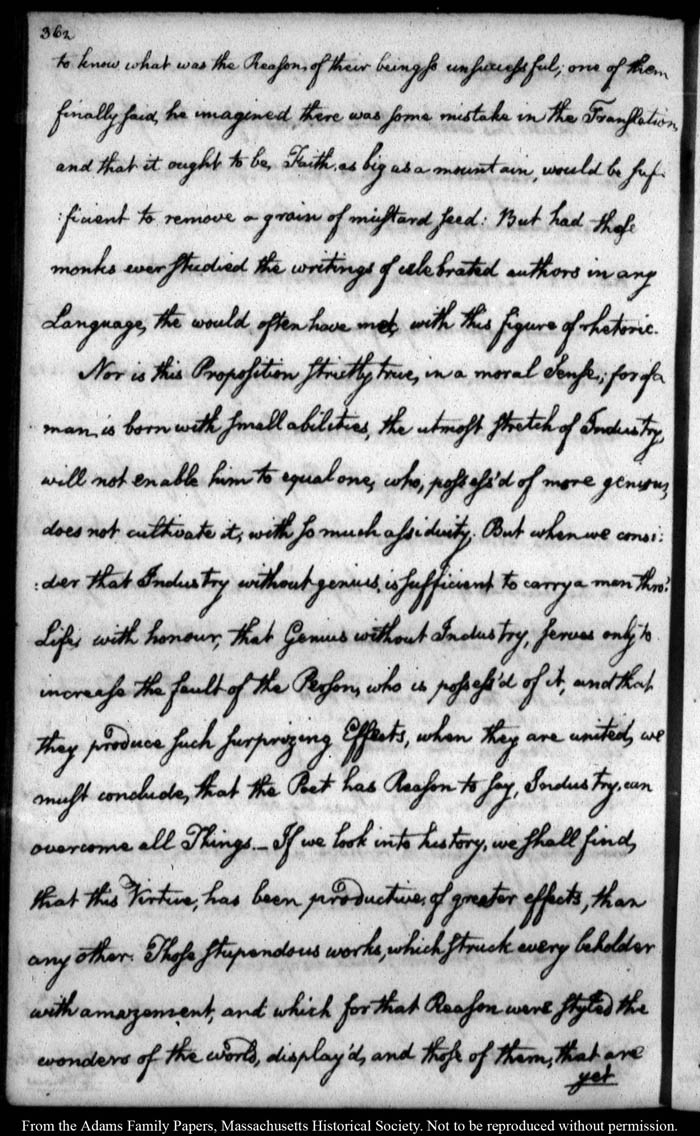 362
to know what was the Reason, of their being so unsuccessful; one of them
finally said, he imagined, there was some mistake in the Translation,
and that it ought to be, Faith, as big as a mountain, would be suf-
:ficient to remove a grain of mustard seed: But had those
monks ever studied the writings of celebrated authors in any
Language, the would often have met, with this figure of rhetoric.
Nor is this Proposition strictly true, in a moral Sense; for if a
man, is born with small abilities, the utmost stretch of Industry,
will not enable him to equal one, who, possess'd of more genius,
does not cultivate it, with so much assiduity. But when we consi:
:der that Industry without genius, is sufficient to carry a man thro'
Life, with honour, that Genius without Industry, serves only to
increase the fault of the Person, who is possess'd of it, and that
they produce such surprizing Effects, when they are united, we
must conclude, that the Poet has Reason to say, Industry, can
overcome all Things.— If we look into history, we shall find,
that this Virtue, has been productive, of greater effects, than
any other. Those stupendous works, which struck every beholder
with amazement, and which for that Reason were styled the
wonders of the world, display'd, and those of them, that are
yet
From the Adams Family Papers, Massachusetts Historical Society. Not to be reproduced without permission.